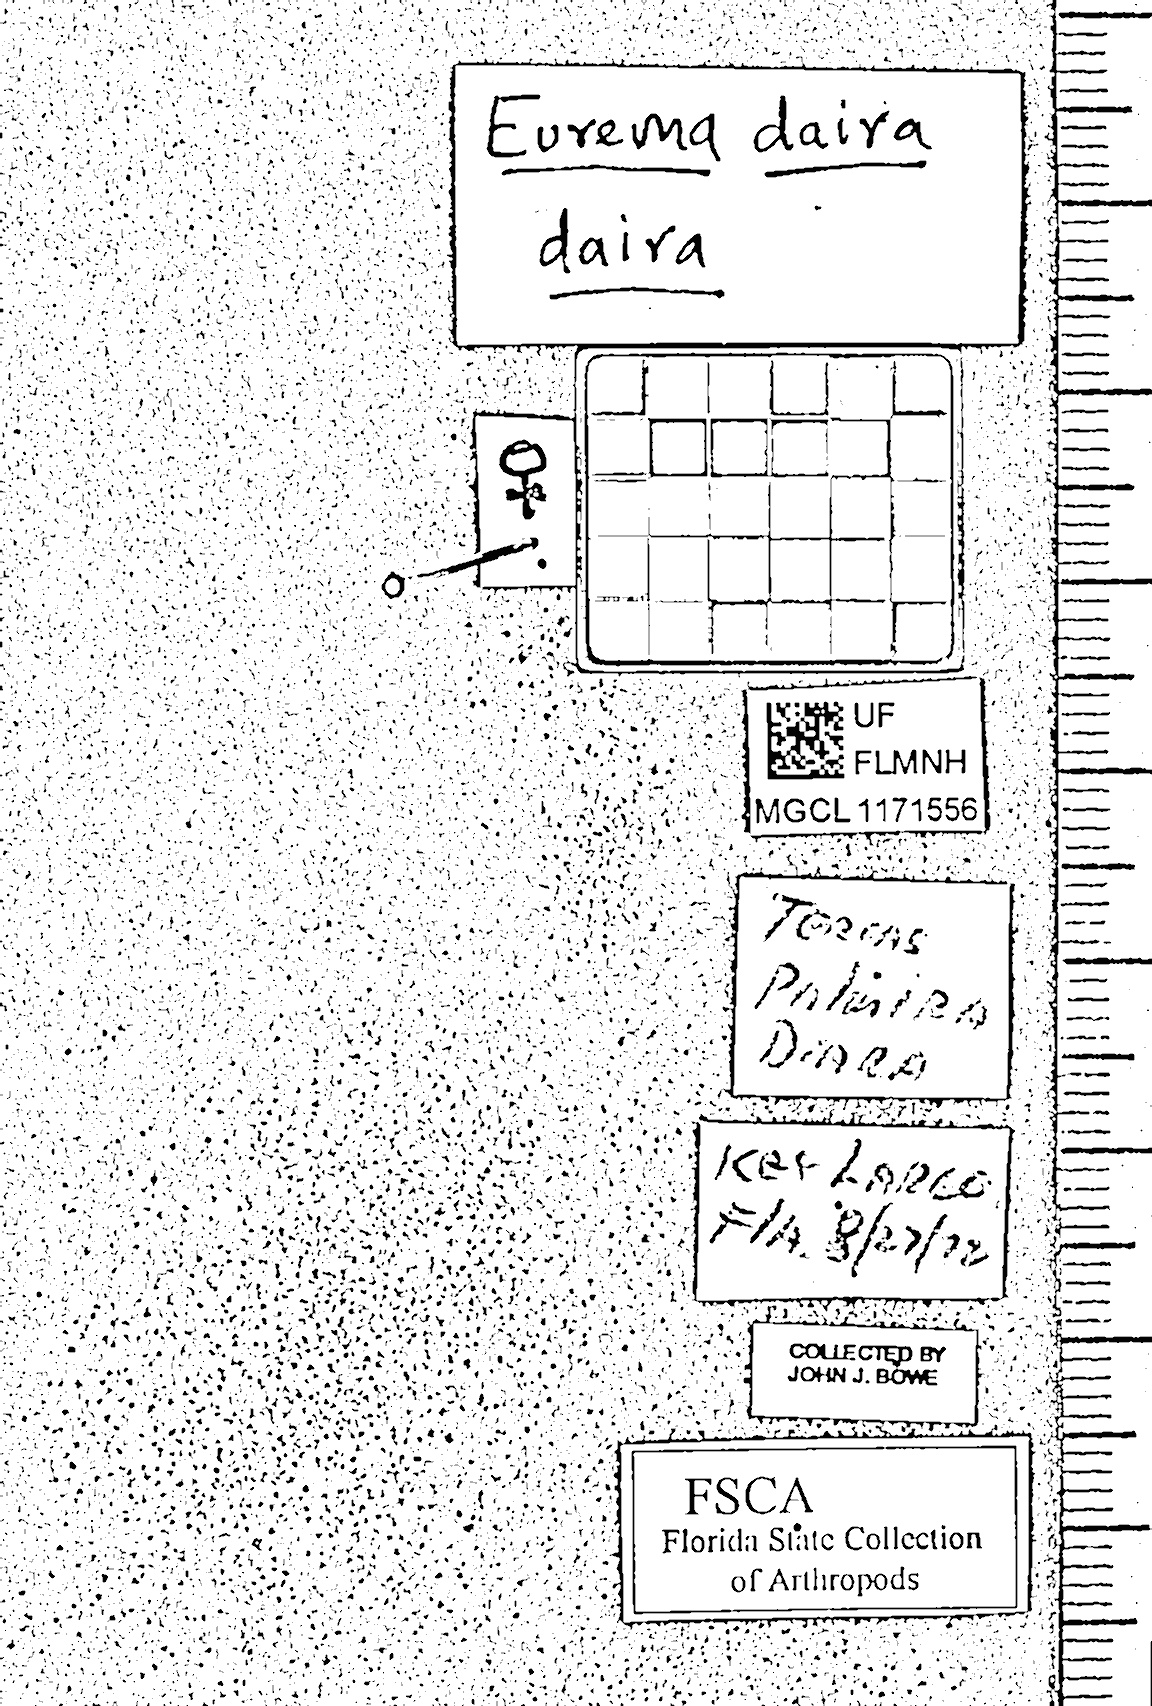 Eurema daira
daira
♀
UF
FLMNH
MGCL 1171556
Terias
Palmira
Diara
Key Largo
Fla. 8/27/72
COLLECTED BY
JOHN J. BOWE
FSCA
Florida State Collection
of Arthropods